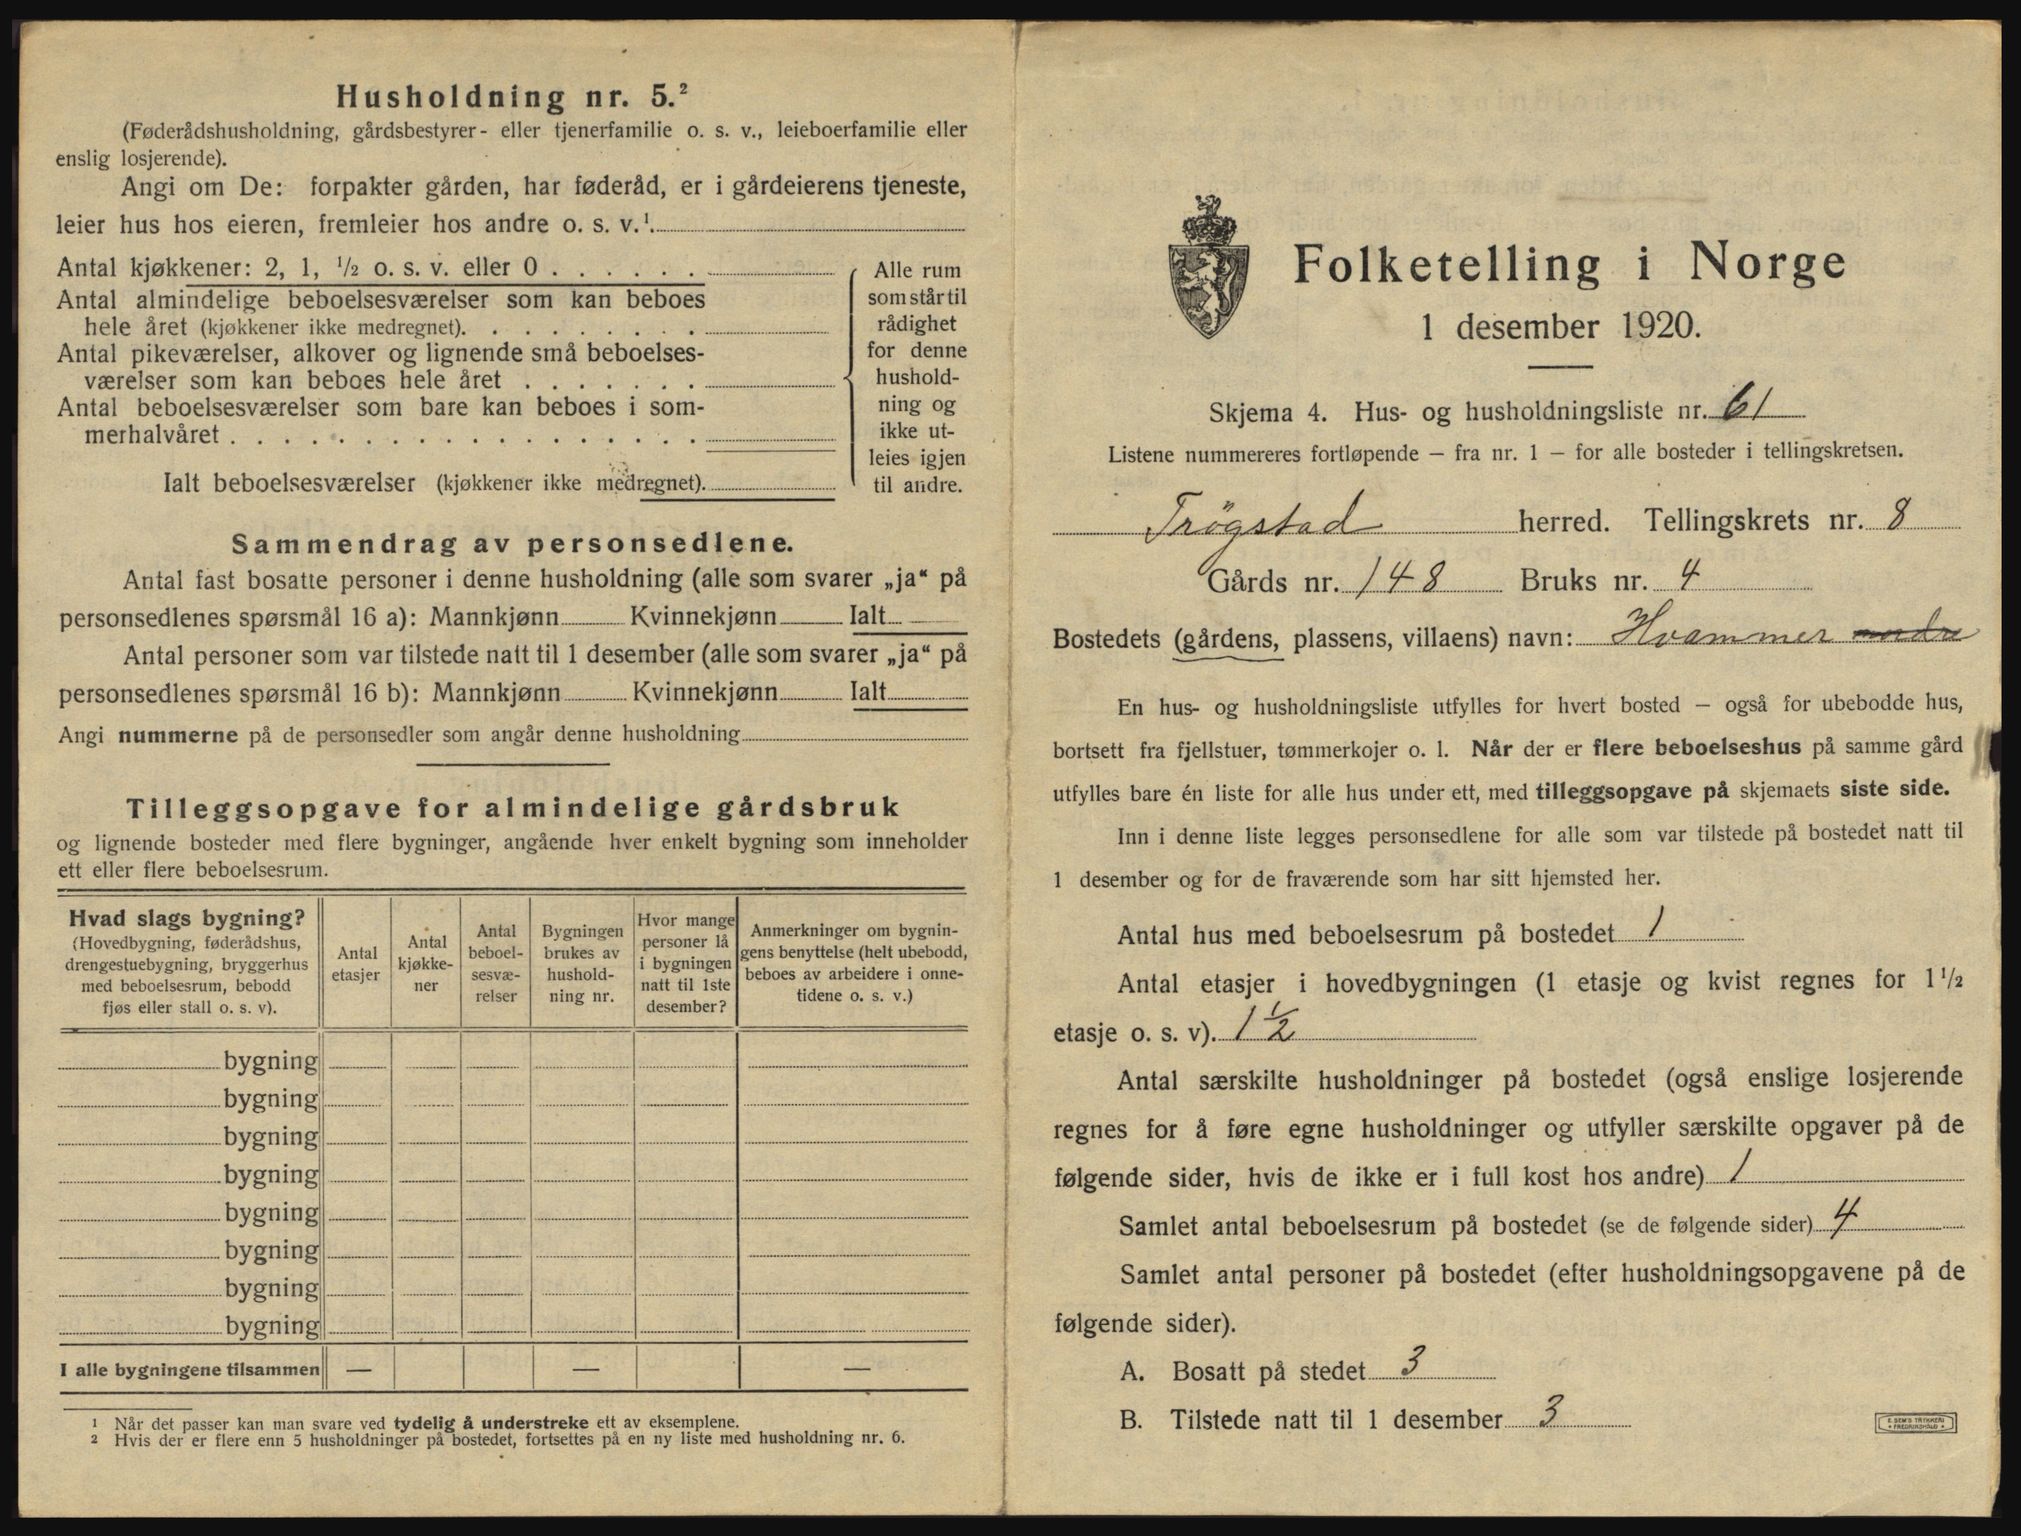 Husholdning nr. 5.²
(Føderådshusholdning, gårdsbestyrer- eller tjenerfamilie o. s. v., leieboerfamilie eller
enslig losjerende).
Angi om De: forpakter gården, har føderåd, er i gårdeierens tjeneste,
leier hus hos eieren, fremleier hos andre o. s. v.¹.
Antal kjøkkener: 2, 1, ½ o. s. v. eller 0 . . . . . .
Antal almindelige beboelsesværelser som kan beboes
hele året (kjøkkener ikke medregnet). . . . . . . . .
Antal pikeværelser, alkover og lignende små beboelses-
værelser som kan beboes hele året . . . . . . .
Antal beboelsesværelser som bare kan beboes i som-
merhalvåret . . . . . . . . . . . . . . . . . .
Ialt beboelsesværelser (kjøkkener ikke medregnet).
Alle rum
som står til
rådighet
for denne
hushold-
ning og
ikke ut-
leies igjen
til andre.
Sammendrag av personsedlene.
Antal fast bosatte personer i denne husholdning (alle som svarer „ja“ på
personsedlenes spørsmål 16 a): Mannkjønn Kvinnekjønn Ialt
Antal personer som var tilstede natt til 1 desember (alle som svarer „ja“ på
personsedlenes spørsmål 16 b): Mannkjønn Kvinnekjønn Ialt
Angi nummerne på de personsedler som angår denne husholdning
Tilleggsopgave for almindelige gårdsbruk
og lignende bosteder med flere bygninger, angående hver enkelt bygning som inneholder
ett eller flere beboelsesrum.
Hvad slags bygning?
(Hovedbygning, føderådshus,
drengestuebygning, bryggerhus
med beboelsesrum, bebodd
fjøs eller stall o. s. v).
Antal
etasjer
Antal
kjøkke-
ner
Antal
beboel-
sesvæ-
relser
Bygningen
brukes av
hushold-
ning nr.
Hvor mange
personer lå
i bygningen
natt til 1ste
desember?
Anmerkninger om bygnin-
gens benyttelse (helt ubebodd,
beboes av arbeidere i onne-
tidene o. s. v.)
bygning
bygning
bygning
bygning
bygning
bygning
bygning
bygning
I alle bygningene tilsammen — — —
¹ Når det passer kan man svare ved tydelig å understreke ett av eksemplene.
² Hvis der er flere enn 5 husholdninger på bostedet, fortsettes på en ny liste med husholdning nr. 6.
Folketelling i Norge
1 desember 1920.
Skjema 4. Hus- og husholdningsliste nr. 61
Listene nummereres fortløpende – fra nr. 1 – for alle bosteder i tellingskretsen.
Trøgstad herred. Tellingskrets nr. 8
Gårds nr. 148 Bruks nr. 4
Bostedets (gårdens, plassens, villaens) navn: Hvammer nordre
En hus- og husholdningsliste utfylles for hvert bosted – også for ubebodde hus,
bortsett fra fjellstuer, tømmerkojer o. l. Når der er flere beboelseshus på samme gård
utfylles bare én liste for alle hus under ett, med tilleggsopgave på skjemaets siste side.
Inn i denne liste legges personsedlene for alle som var tilstede på bostedet natt til
1 desember og for de fraværende som har sitt hjemsted her.
Antal hus med beboelsesrum på bostedet 1
Antal etasjer i hovedbygningen (1 etasje og kvist regnes for 1½
etasje o. s. v). 1½
Antal særskilte husholdninger på bostedet (også enslige losjerende
regnes for å føre egne husholdninger og utfyller særskilte opgaver på de
følgende sider, hvis de ikke er i full kost hos andre) 1
Samlet antal beboelsesrum på bostedet (se de følgende sider) 4
Samlet antal personer på bostedet (efter husholdningsopgavene på de
følgende sider).
A. Bosatt på stedet 3
B. Tilstede natt til 1 desember 3
E. SEM'S TRYKKERI
FREDRIKSHALD